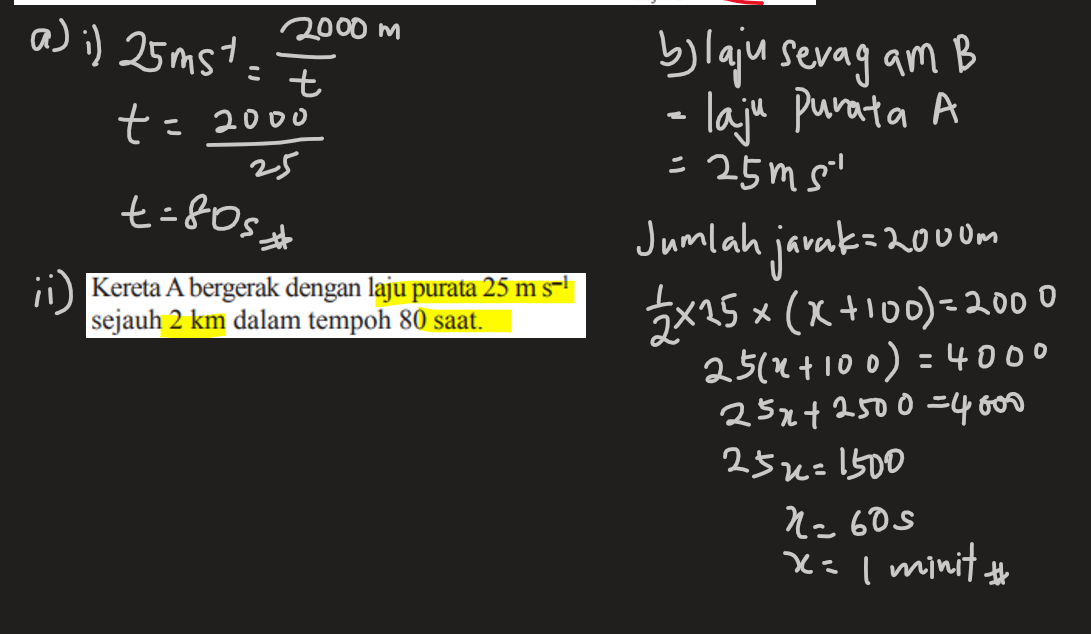 a) i) 25ms⁻¹ = 2000 m / t
t = 2000 / 25
t = 80s #
ii) Kereta A bergerak dengan laju purata 25 m s⁻¹
sejauh 2 km dalam tempoh 80 saat.
b) laju seragam B
= laju Purata A
= 25 m s⁻¹
Jumlah jarak = 2000m
1/2 × 25 × (x + 100) = 2000
25(x + 100) = 4000
25x + 2500 = 4000
25x = 1500
x = 60s
x = 1 minit #